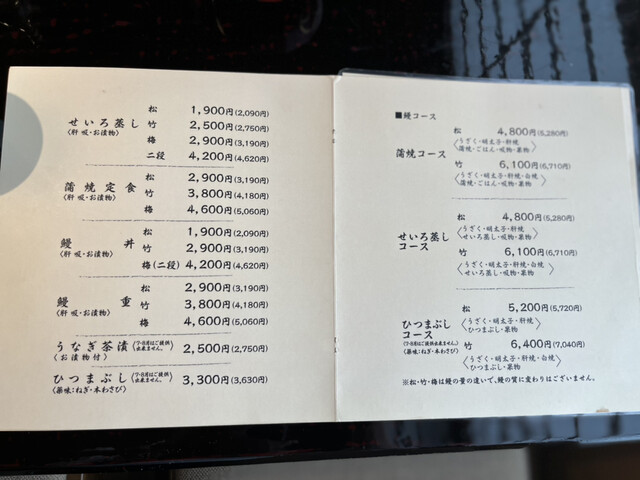 せいろ蒸し
(肝吸・お漬物)
松 1,900円(2,090円)
竹 2,500円(2,750円)
梅 2,900円(3,190円)
二段 4,200円(4,620円)
蒲焼定食
(肝吸・お漬物)
松 2,900円(3,190円)
竹 3,800円(4,180円)
梅 4,600円(5,060円)
鰻丼
(肝吸・お漬物)
松 1,900円(2,090円)
竹 2,900円(3,190円)
梅(二段) 4,200円(4,620円)
鰻重
(肝吸・お漬物)
松 2,900円(3,190円)
竹 3,800円(4,180円)
梅 4,600円(5,060円)
うなぎ茶漬 (7・8月はご提供出来ません。) 2,500円(2,750円)
(お漬物付)
ひつまぶし (7・8月はご提供出来ません。) 3,300円(3,630円)
(薬味:ねぎ・本わさび)
■鰻コース
蒲焼コース
松 4,800円(5,280円)
〈うざく・明太子・肝焼
蒲焼・ごはん・吸物・果物〉
竹 6,100円(6,710円)
〈うざく・明太子・肝焼・白焼
蒲焼・ごはん・吸物・果物〉
せいろ蒸し
コース
松 4,800円(5,280円)
〈うざく・明太子・肝焼
せいろ蒸し・吸物・果物〉
竹 6,100円(6,710円)
〈うざく・明太子・肝焼・白焼
せいろ蒸し・吸物・果物〉
ひつまぶし
コース
(7・8月はご提供出来ません。)
(薬味:ねぎ・本わさび)
松 5,200円(5,720円)
〈うざく・明太子・肝焼
ひつまぶし・果物〉
竹 6,400円(7,040円)
〈うざく・明太子・肝焼・白焼
ひつまぶし・果物〉
※松・竹・梅は鰻の量の違いで、鰻の質に変わりはございません。